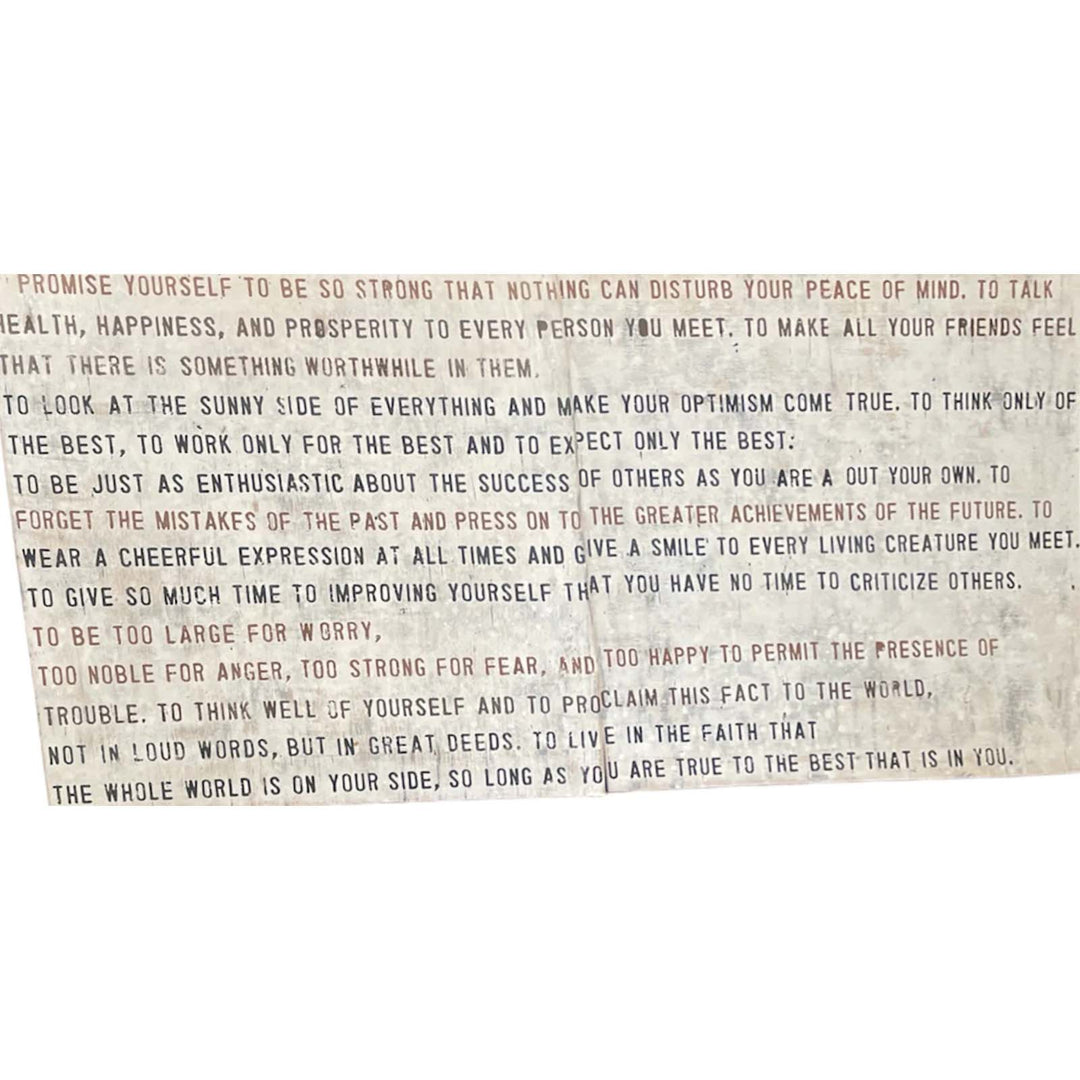 PROMISE YOURSELF TO BE SO STRONG THAT NOTHING CAN DISTURB YOUR PEACE OF MIND. TO TALK
HEALTH, HAPPINESS, AND PROSPERITY TO EVERY PERSON YOU MEET. TO MAKE ALL YOUR FRIENDS FEEL
THAT THERE IS SOMETHING WORTHWHILE IN THEM.
TO LOOK AT THE SUNNY SIDE OF EVERYTHING AND MAKE YOUR OPTIMISM COME TRUE. TO THINK ONLY OF
THE BEST, TO WORK ONLY FOR THE BEST AND TO EXPECT ONLY THE BEST.
TO BE JUST AS ENTHUSIASTIC ABOUT THE SUCCESS OF OTHERS AS YOU ARE A OUT YOUR OWN. TO
FORGET THE MISTAKES OF THE PAST AND PRESS ON TO THE GREATER ACHIEVEMENTS OF THE FUTURE. TO
WEAR A CHEERFUL EXPRESSION AT ALL TIMES AND GIVE A SMILE TO EVERY LIVING CREATURE YOU MEET.
TO GIVE SO MUCH TIME TO IMPROVING YOURSELF THAT YOU HAVE NO TIME TO CRITICIZE OTHERS.
TO BE TOO LARGE FOR WORRY,
TOO NOBLE FOR ANGER, TOO STRONG FOR FEAR, AND TOO HAPPY TO PERMIT THE PRESENCE OF
TROUBLE. TO THINK WELL OF YOURSELF AND TO PROCLAIM THIS FACT TO THE WORLD,
NOT IN LOUD WORDS, BUT IN GREAT DEEDS. TO LIVE IN THE FAITH THAT
THE WHOLE WORLD IS ON YOUR SIDE, SO LONG AS YOU ARE TRUE TO THE BEST THAT IS IN YOU.